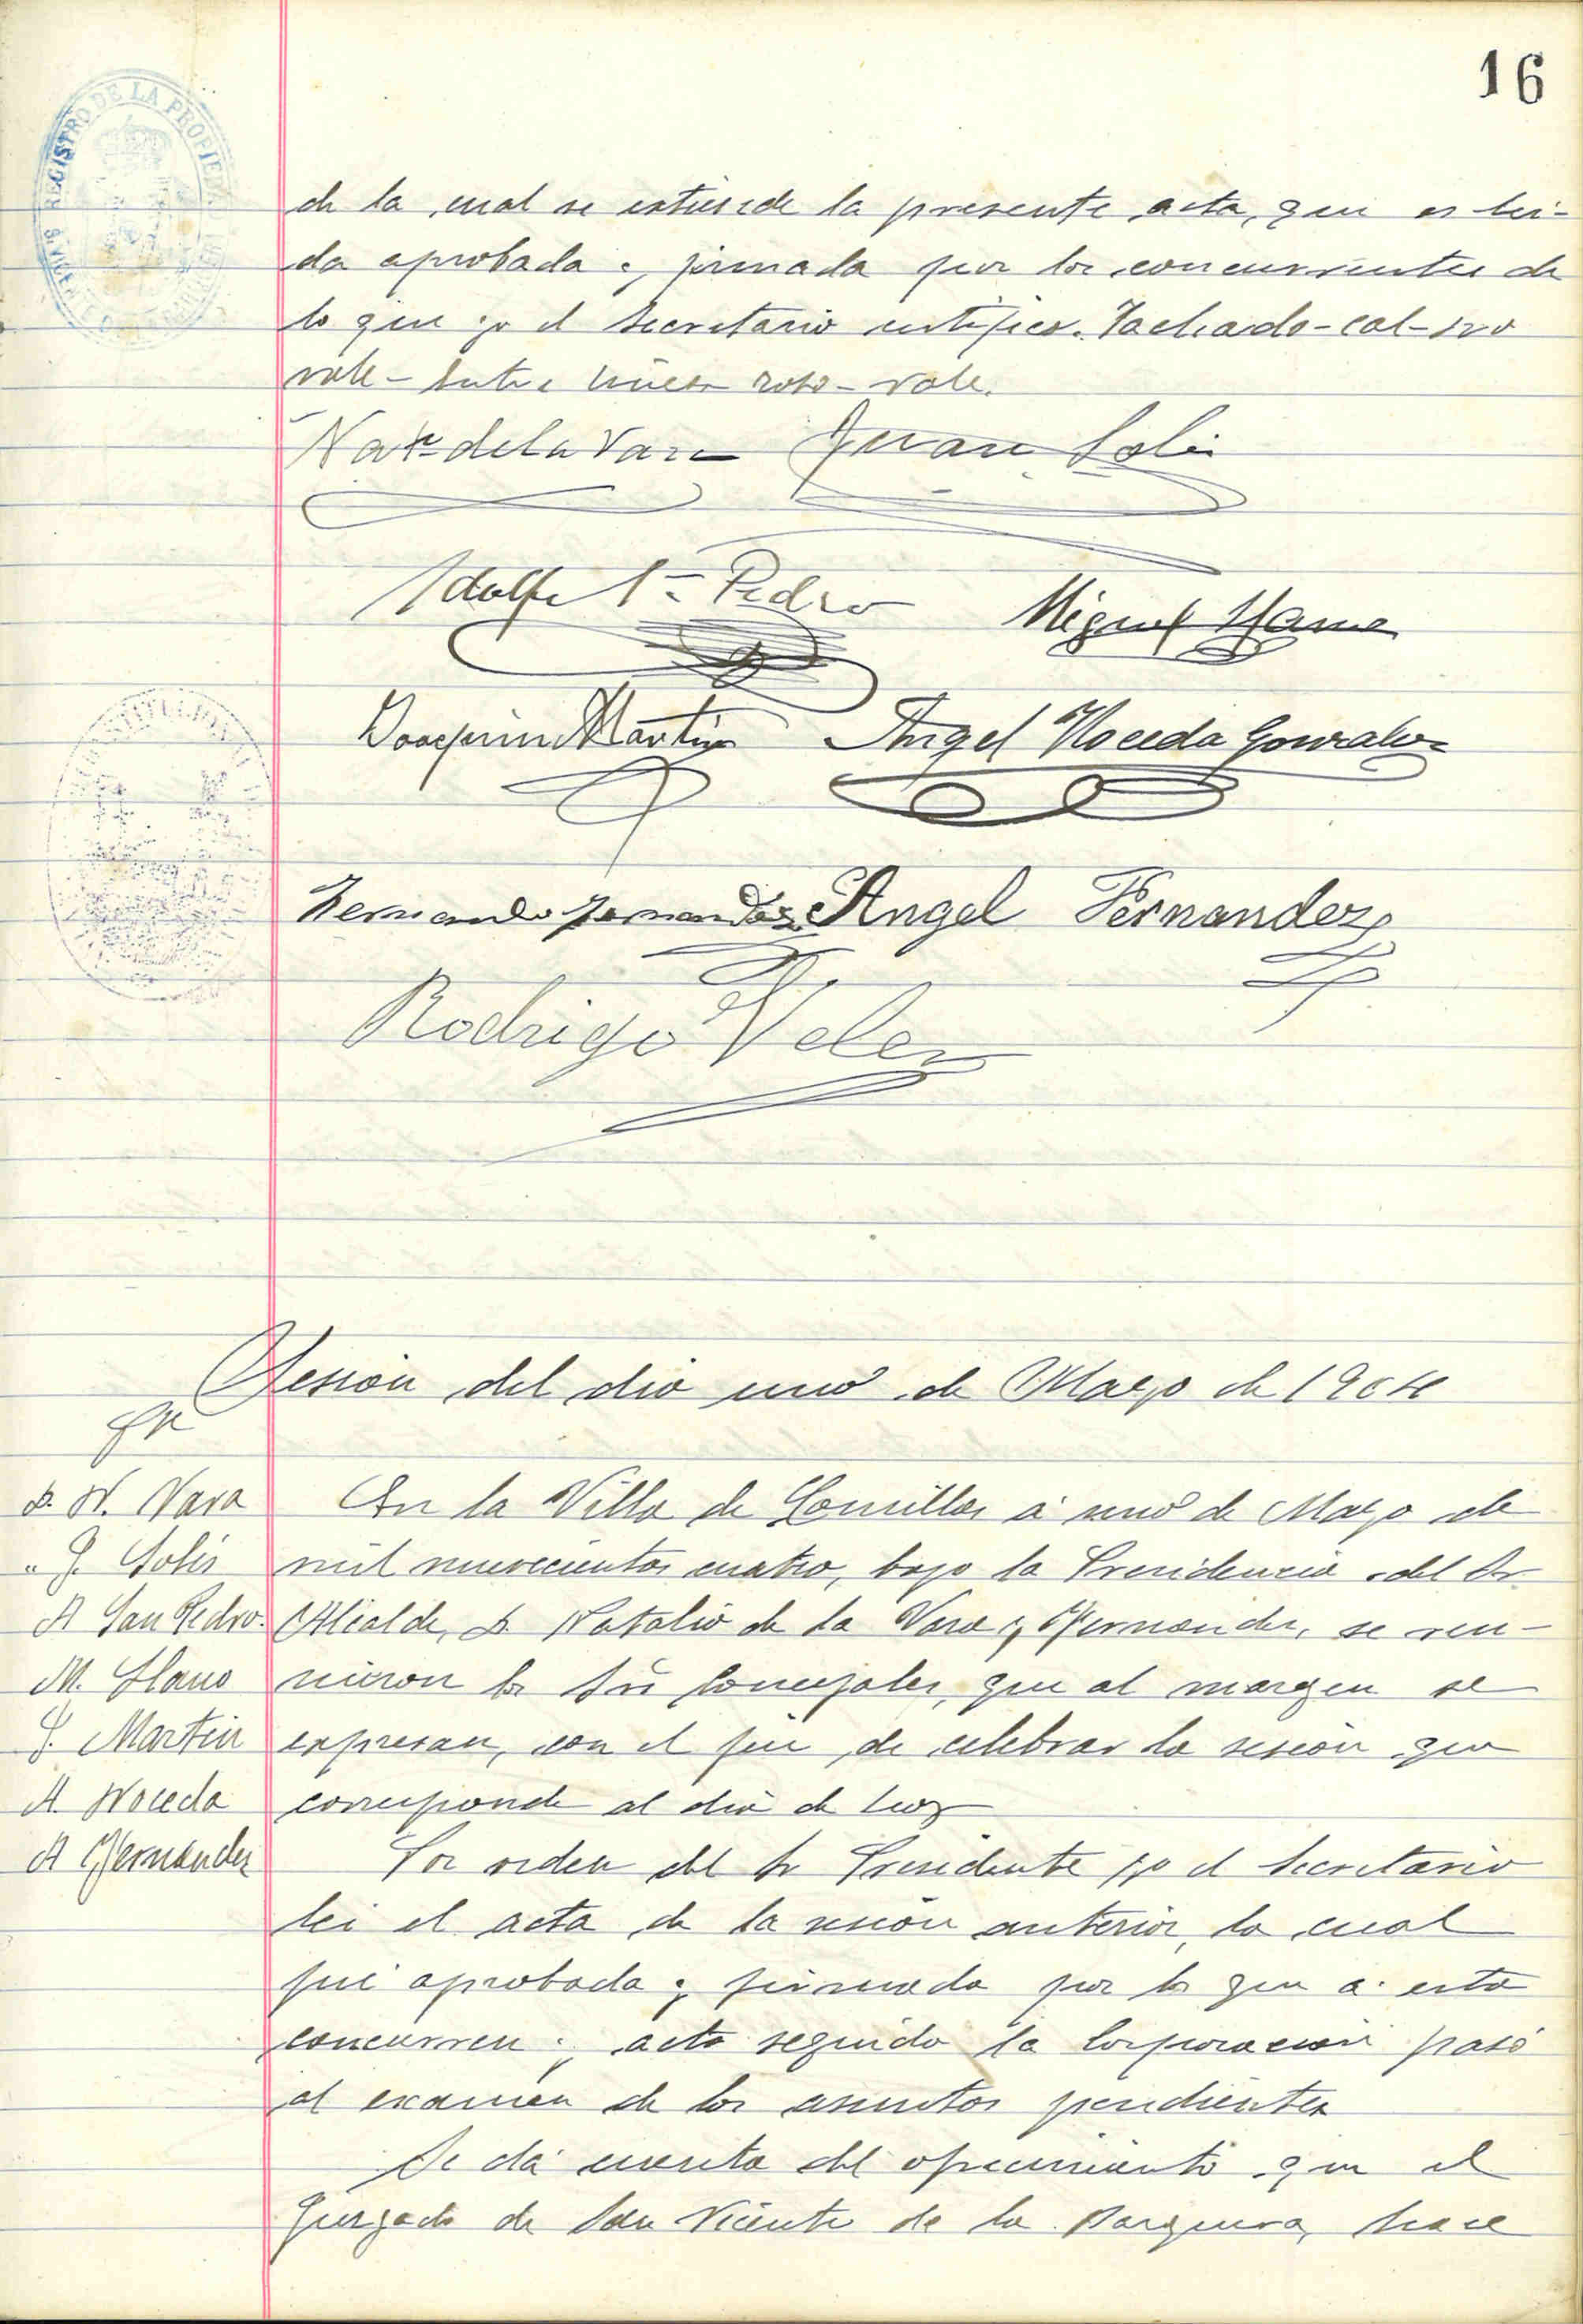 16
REGISTRO DE LA PROPIE
de la cual se estiende la presente acta, que es lei-
da aprobada y firmada por los concurrentes de
lo que yo el Secretario certifico. Tachado-cal-no
vale- Entre lineas roto- vale.
Nat.º de la Vara Juan Solis
Adolfo S.n Pedro Miguel Llano
Joaquin Martin Angel Noceda Gonzalez
Fernando Fernandez Angel Fernandez
Rodrigo Velez
Sesión del dia uno de Marzo de 1904
D. N. Vara
" J. Solis
A San Pedro
M. Llano
J. Martin
A. Noceda
A Fernandez
En la Villa de Comillas á uno de Marzo de
mil novecientos cuatro, bajo la Presidencia del Sr
Alcalde, D. Natalio de la Vara y Fernandez, se reu-
nieron los Sres Concejales, que al margen se
expresan, con el fin de celebrar la sesión que
corresponde al dia de hoy
Por orden del Sr Presidente yo el Secretario
lei el acta de la sesión anterior, la cual
fué aprobada y firmada por los que á esta
concurren y acto seguido la Corporación pasó
al examen de los asuntos pendientes
Se dá cuenta del ofrecimiento que el
Juzgado de San Vicente de la Barquera, hace